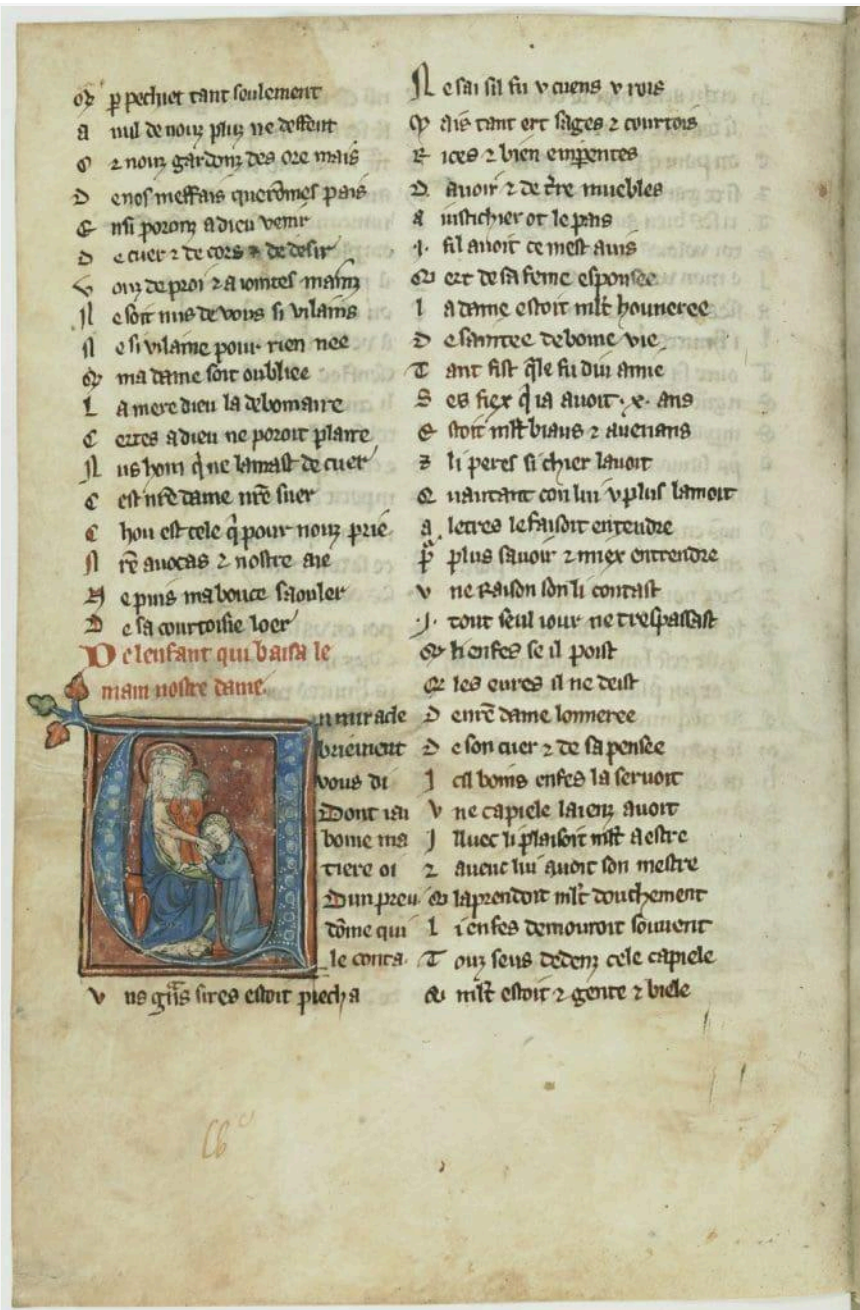 Q̃ p̲ pechiet tant soulement
A nul de nouz pluz ne deffent
O ꝛ nouz gardonz des ore mais
D e nos meffais querõmes pais
E nsi poronz a dieu venir
D e cuer ꝛ de cors ꝛ de desir
V ouz deproi ꝛ a iointes mainz
N e soit nus de vous si vilains
N e si vilaine pour rien nee
Q̃ ma dame soit oubliee
L a mere dieu la debonaire
C ertes a dieu ne poroit plaire
N us hom q̃ ne lamast de cuer
C est nr̃e dame nr̃e suer
C hou est cele q̃ pour nouz prie
N r̃e auocas ꝛ nostre aie
N e puis ma bouce saouler
D e sa courtoisie loer
De lenfant qui baisa le
main nostre dame.
Un miracle
briement
vous di
Dont iai
boine ma
tiere oi
Dun preu
dõme qui
le conta.
V ns grãs sires estoit piecha
N e sai sil fu v cuens v rois
M ais tant ert sages ꝛ courtois
R ices ꝛ bien enp̲entes
D auoir ꝛ de t̃re muebles
A iustichier ot le pais
.I. fil auoit ce mest auis
Q̃ ert de sa feme espousee
L a dame estoit ml̃t houneree
D e saintee de boine vie
T ant fist q̃le fu diu amie
S es fiex q̃ ia auoit .x. ans
E stoit ml̃t biaus ꝛ auenans
ꝛ li peres si chier lauoit
Q uautant con lui v plus lamoit
A letres le faisoit entendre
P̃ plus sauoir ꝛ miex entrendre
V ne raison son li contast
.I. tout seul iour ne trespassast
Q̃ li enfes se il poist
Q̃ les eures il ne deist
D e nr̃e dame lonneree
D e son cuer ꝛ de sa pensee
I cil boins enfes la seruoit
V ne capiele laienz auoit
I lluec li plaisoit ml̃t a estre
ꝛ auenc lui auoit son mestre
Q̃ laprendoit ml̃t douchement
L i enfes demouroit souuent
T ouz seus dedenz cele capiele
Q̃ ml̃t estoit ꝛ gente ꝛ biele